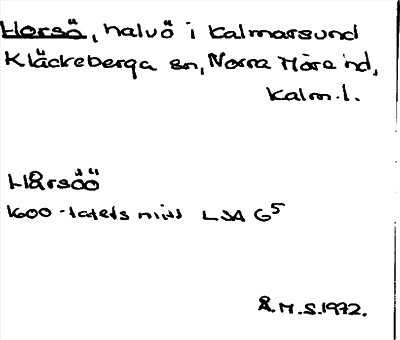 Horsö, halvö i Kalmarsund
Kläckeberga sn, Norra Möre hd,
Kalm. l.
Hårsöö
1600-talets mitt LSA G5
Å.M.S. 1972.